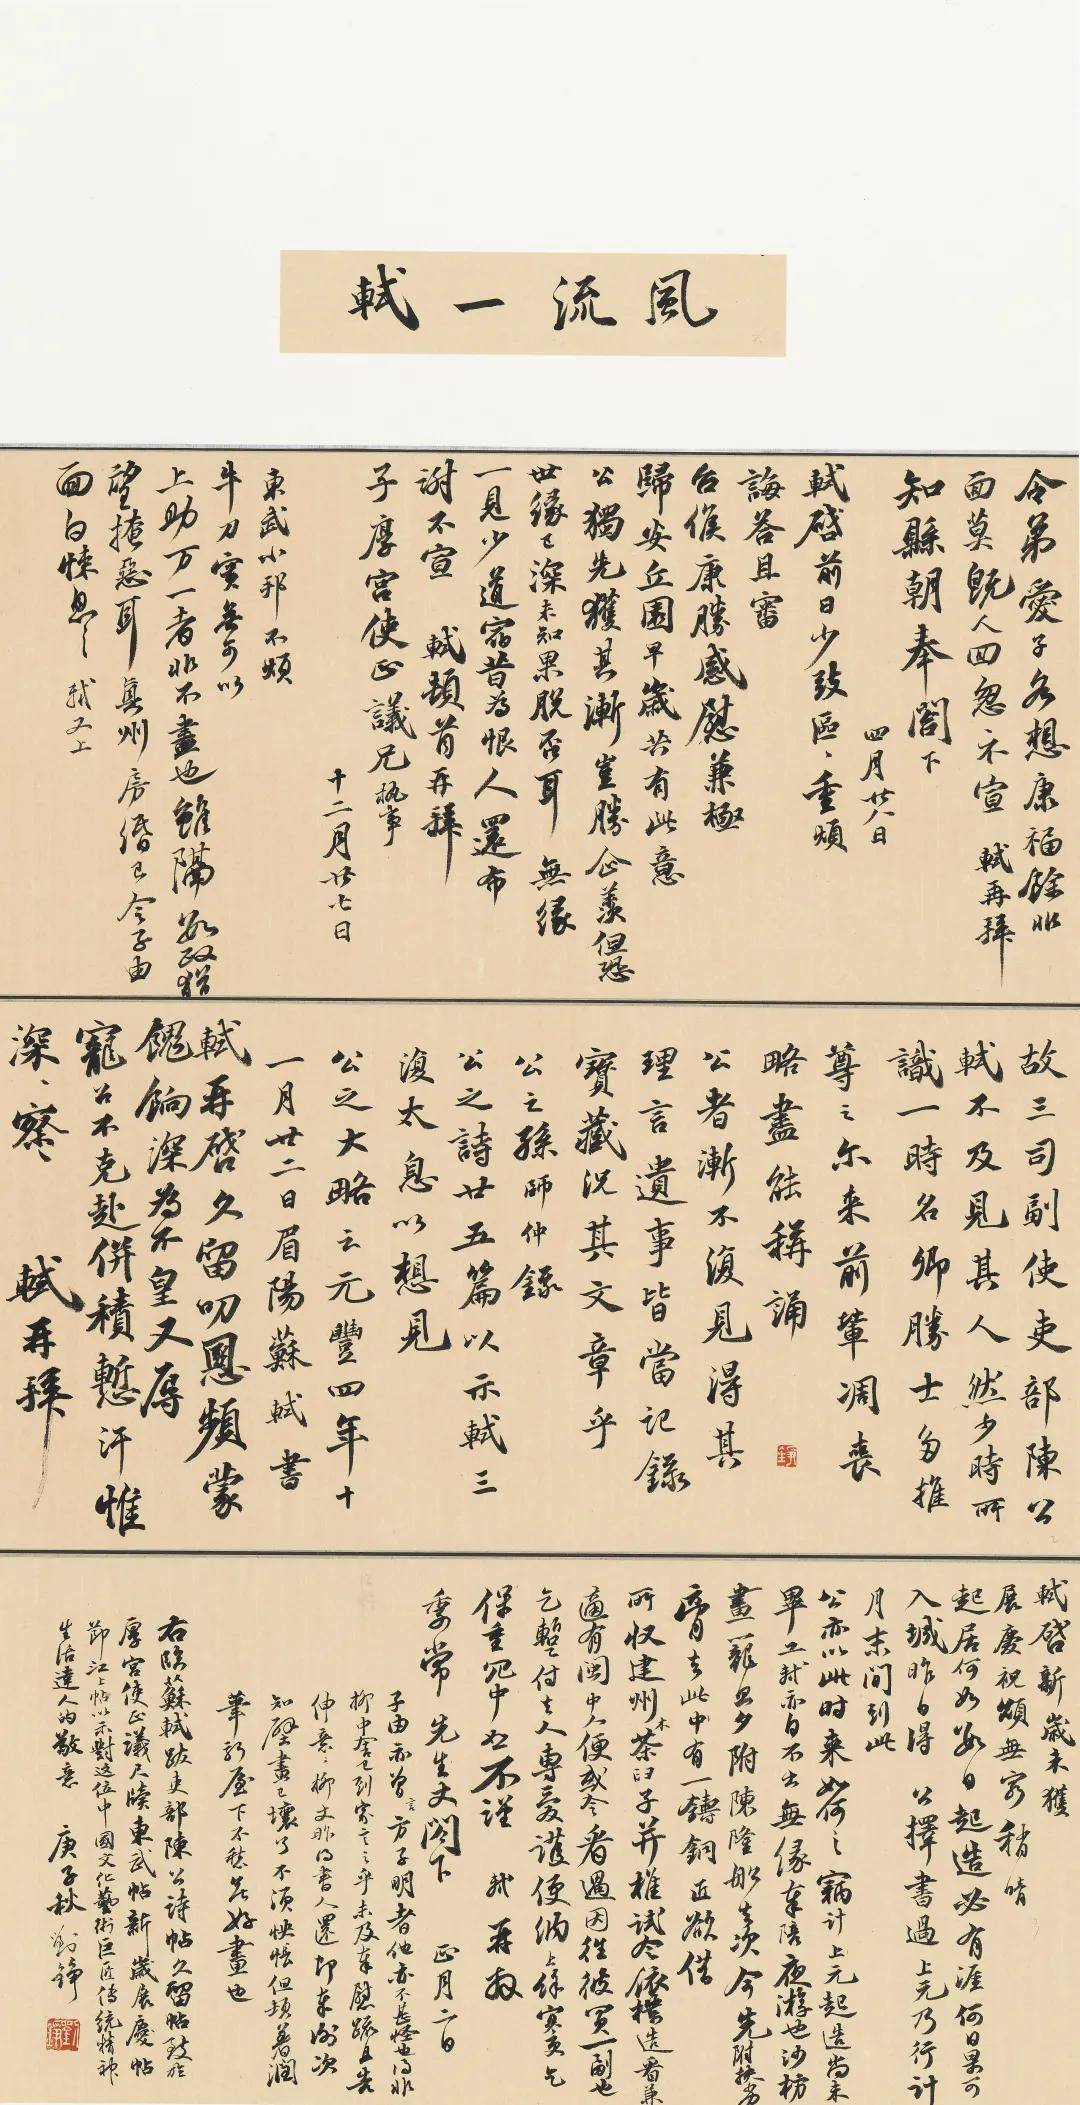 風流一軾
令弟愛子各想康福餘非
面莫既人回忽不宣 軾再拜
知縣朝奉閣下
四月廿八日
軾啓前日少致區、重煩
誨答且審
台候康勝感慰兼極
歸安丘園早歲共有此意
公獨先獲其漸豈勝企羨但恐
世緣已深未知果脫否耳 無緣
一見少道宿昔為恨人還布
謝不宣 軾頓首再拜
子厚宮使正議兄執事
十二月廿七日
東武小邦不煩
牛刀實無可以
上助万一者非不盡也雖隔數政猶
望掩惡耳 真州房緡已令子由
面白悚息、 軾又上
故三司副使吏部陳公
軾不及見其人然少時所
識一時名卿勝士多推
尊之尔来前輩凋喪
略盡能稱誦
公者漸不復見得其
理言遺事皆當記錄
寶藏況其文章乎
公之孫師仲錄
公之詩廿五篇以示軾三
復太息以想見
公之大略云元豐四年十
一月廿二日眉陽蘇軾書
軾再啓久留叨恩頻蒙
餽餉深為不皇又辱
寵召不克赴併積慙汗惟
深、察、 軾再拜
軾啓新歲未獲
展慶祝頌無窮稍晴
起居何如數日起造必有涯何日果可
入城昨日得 公擇書過上元乃行計
月末間到此
公亦以此时来如何、竊計上元起造尚未
畢工軾亦自不出無緣奉陪夜游也沙枋
畫籠旦夕附陳隆船去次今先附扶劣
膏去此中有一鑄銅匠欲借
所收建州木茶臼子并椎試令依樣造看兼
適有閩中人便或令看過因往彼買一副也
乞暫付去人專愛護便納上餘寒更乞
保重冗中恕不謹 軾再拜
季常先生丈閣下 正月二日
子由亦曾言方子明者他亦不甚怪也得非
柳中舍已到家言之乎未及奉慰疏且告
伸意、柳丈昨得書人還即奉謝次
知壁畫已壞了不須怏悵但頓著潤
筆新屋下不愁無好畫也
右臨蘇軾跋吏部陳公詩帖久留帖致子
厚宮使正議尺牘東武帖新歲展慶帖
節江上帖以示對這位中國文化藝術巨匠傳統精神
生活達人的敬意 庚子秋 劉錚